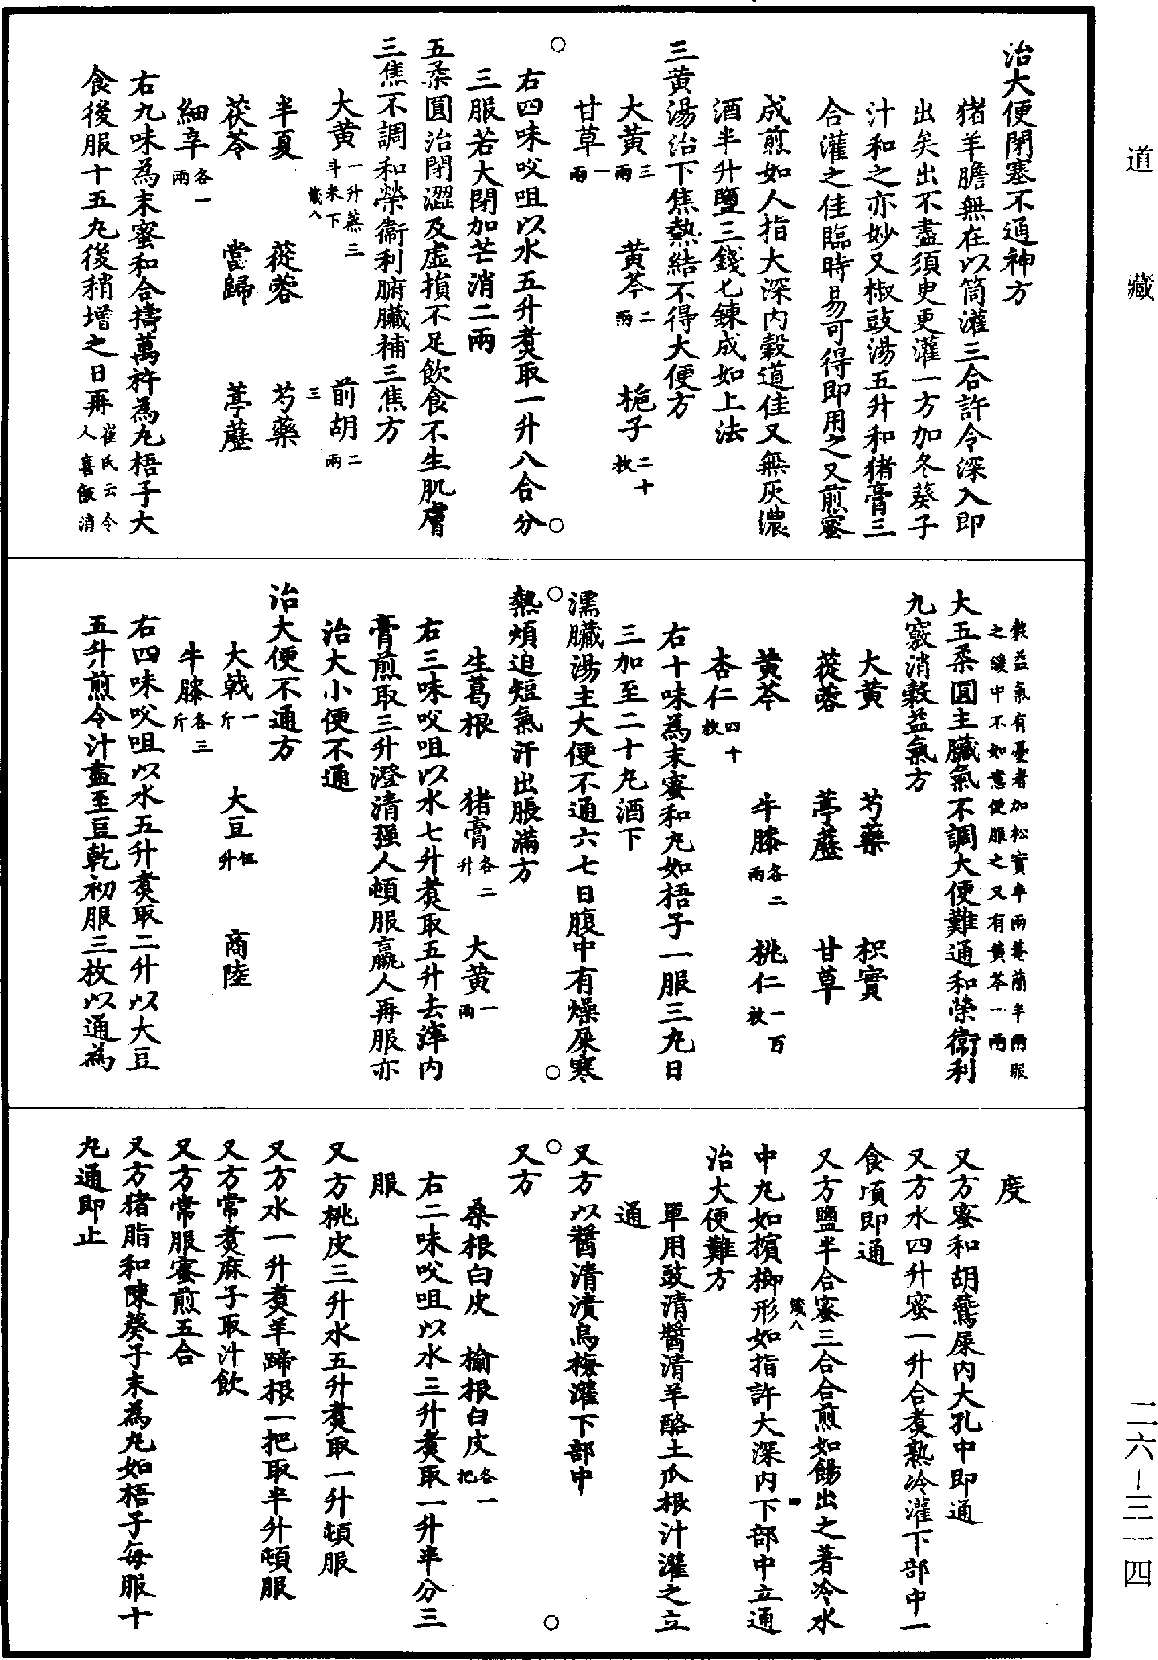 道藏
治大便閉塞不通神方
猪羊膽無在以筒灌三合許令深入即
出矣出不盡須臾更灌一方加冬葵子
汁和之亦妙又椒豉湯五升和猪膏三
合灌之佳臨時易可得即用之又煎蜜
成煎如人指大深內穀道佳又無灰濃
酒半升鹽三錢匕鍊成如上法
三黃湯治下焦熱結不得大便方
大黃三兩 黃芩二兩 梔子二十枚
甘草一兩
右四味㕮咀以水五升煑取一升八合分
三服若大閉加芒消二兩
五柔圓治閉澀及虛損不足飲食不生肌膚
三焦不調和榮衞利腑臟補三焦方
大黃一升蒸三斗米下 前胡二兩
鐵八 三
半夏 蓯蓉 芍藥
茯苓 當歸 葶藶
細辛各一兩
右九味為末蜜和合擣萬杵為丸梧子大
食後服十五丸後稍增之日再崔氏云令人喜飯消
穀益氣有憂者加松實半兩菴䕡半兩服
之緩中不如意便服之又有黃芩一兩
大五柔圓主臟氣不調大便難通和榮衞利
九竅消穀益氣方
大黃 芍藥 枳實
蓯蓉 葶藶 甘草
黃芩 牛膝各二兩 桃仁一百枚
杏仁四十枚
右十味為末蜜和丸如梧子一服三丸日
三加至二十丸酒下
濡臟湯主大便不通六七日腹中有燥屎寒
熱煩迫短氣汗出脹滿方
生葛根 猪膏各二升 大黃一兩
右三味㕮咀以水七升煑取五升去滓內
膏煎取三升澄清强人頓服羸人再服亦
治大小便不通
治大便不通方
大戟一斤 大豆伍升 商陸
牛膝各三斤
右四味㕮咀以水五升煑取二升以大豆
五升煎令汁盡至豆乾初服三枚以通為
度
又方蜜和胡鷰屎內大孔中即通
又方水四升蜜一升合煑熟冷灌下部中一
食頃即通
又方鹽半合蜜三合合煎如餳出之著冷水
鐵八 四
中丸如檳榔形如指許大深內下部中立通
治大便難方
單用豉清醬清羊酪土瓜根汁灌之立
通
又方以醬清漬烏梅灌下部中
又方
桑根白皮 榆根白皮各一把
右二味㕮咀以水三升煑取一升半分三
服
又方桃皮三升水五升煑取一升頓服
又方水一升煑羊蹄根一把取半升頓服
又方常煑麻子取汁飲
又方常服蜜煎五合
又方猪脂和陳葵子末為丸如梧子每服十
丸通即止
二六-三一四